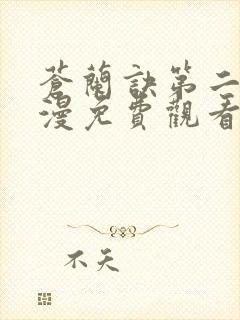 蒼蘭訣第二
漫免費觀看
不天